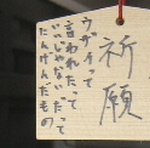 祈願
ウザイって
言われたって
いいじゃないだって
たんげんだもの